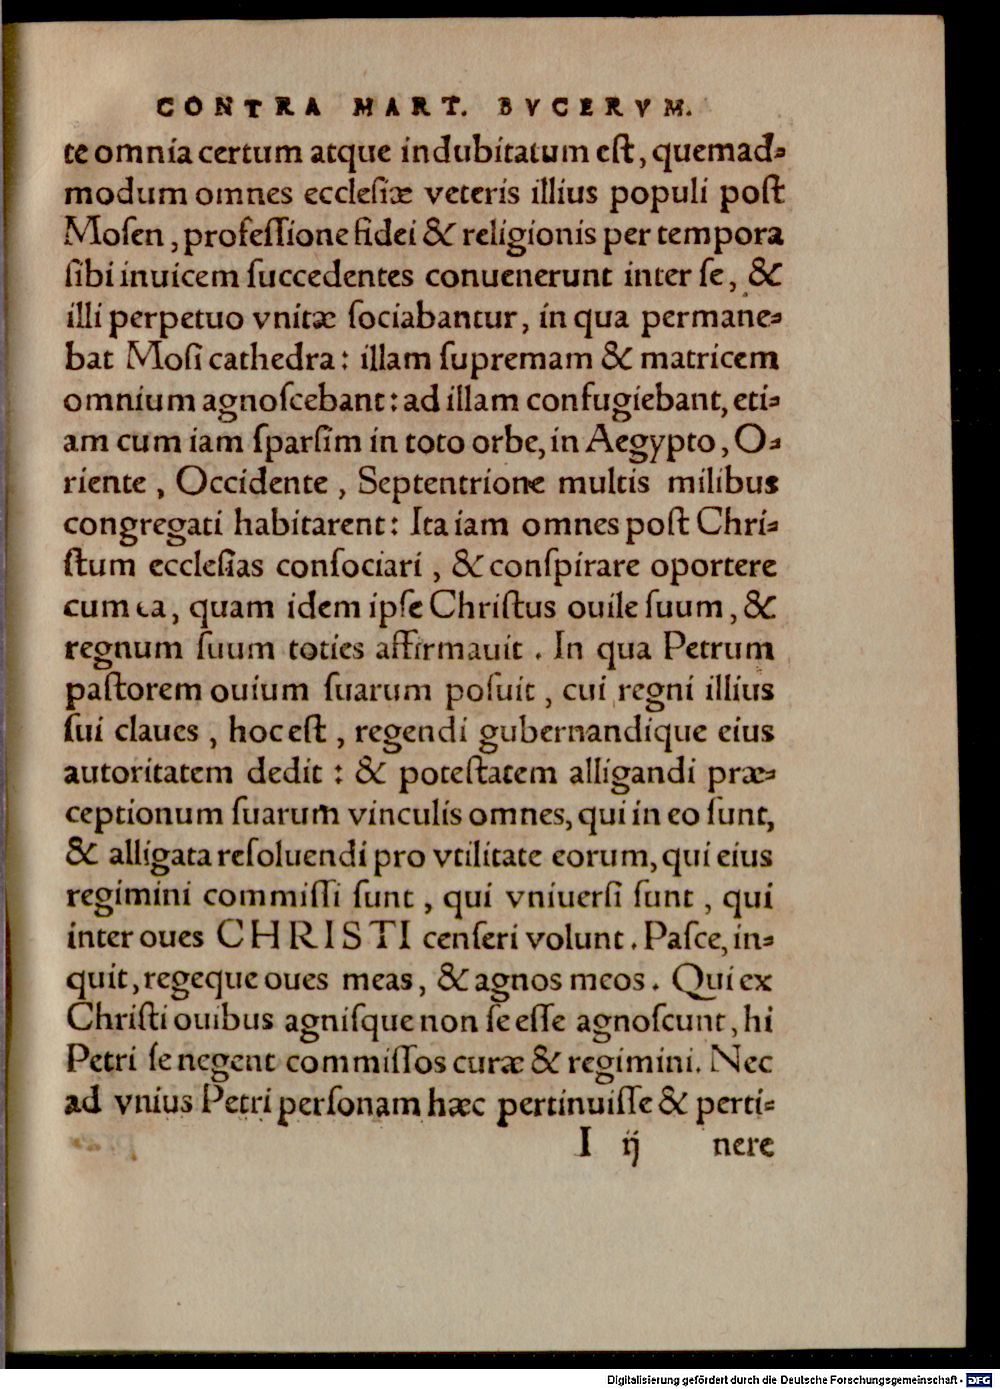 CONTRA MART. BVCERVM.
te omnia certum atque indubitatum eſt, quemad⸗
modum omnes eccleſiæ veteris illius populi poſt
Moſen, profeſſione fidei & religionis per tempora
ſibi inuicem ſuccedentes conuenerunt inter ſe, &
illi perpetuo vnitæ ſociabantur, in qua permane⸗
bat Moſi cathedra: illam ſupremam & matricem
omnium agnoſcebant: ad illam confugiebant, eti⸗
am cum iam ſparſim in toto orbe, in Aegypto, O⸗
riente, Occidente, Septentrione multis milibus
congregati habitarent: Ita iam omnes poſt Chri⸗
ſtum eccleſias conſociari, & conſpirare oportere
cum ea, quam idem ipſe Chriſtus ouile ſuum, &
regnum ſuum toties affirmauit. In qua Petrum
paſtorem ouium ſuarum poſuit, cui regni illius
ſui claues, hoc eſt, regendi gubernandique eius
autoritatem dedit: & poteſtatem alligandi præ⸗
ceptionum ſuarum vinculis omnes, qui in eo ſunt,
& alligata reſoluendi pro vtilitate eorum, qui eius
regimini commiſſi ſunt, qui vniuerſi ſunt, qui
inter oues CHRISTI cenſeri volunt. Paſce, in⸗
quit, regeque oues meas, & agnos meos. Qui ex
Chriſti ouibus agniſque non ſe eſſe agnoſcunt, hi
Petri ſe negent commiſſos curæ & regimini. Nec
ad vnius Petri perſonam hæc pertinuiſſe & perti⸗
I ij nere
Digitalisierung gefördert durch die Deutsche Forschungsgemeinschaft - DFG